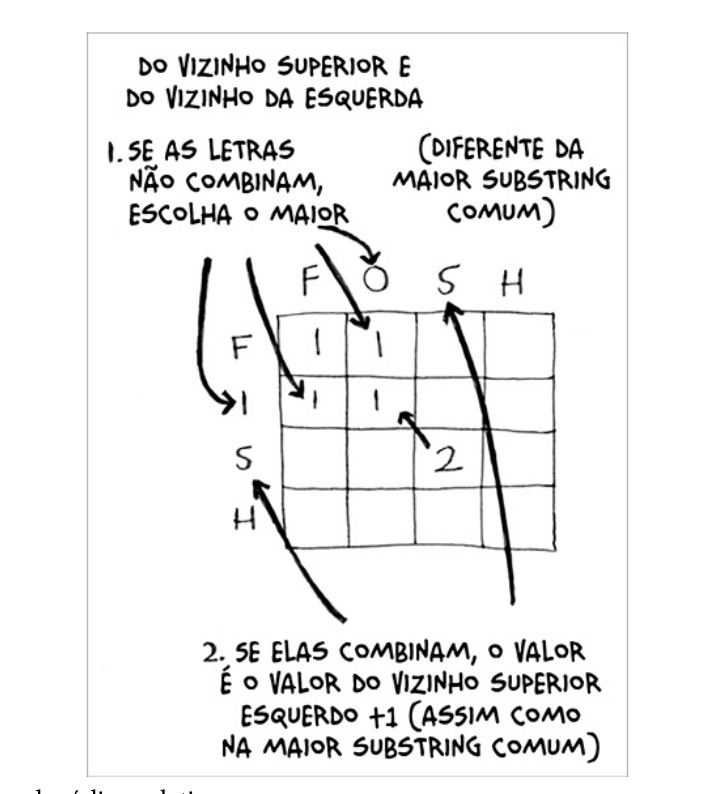 DO VIZINHO SUPERIOR E
DO VIZINHO DA ESQUERDA
1. SE AS LETRAS
NÃO COMBINAM,
ESCOLHA O MAIOR
(DIFERENTE DA
MAIOR SUBSTRING
COMUM)
F O S H
F 1 1
I 1 1
S 2
H
2. SE ELAS COMBINAM, O VALOR
É O VALOR DO VIZINHO SUPERIOR
ESQUERDO +1 (ASSIM COMO
NA MAIOR SUBSTRING COMUM)